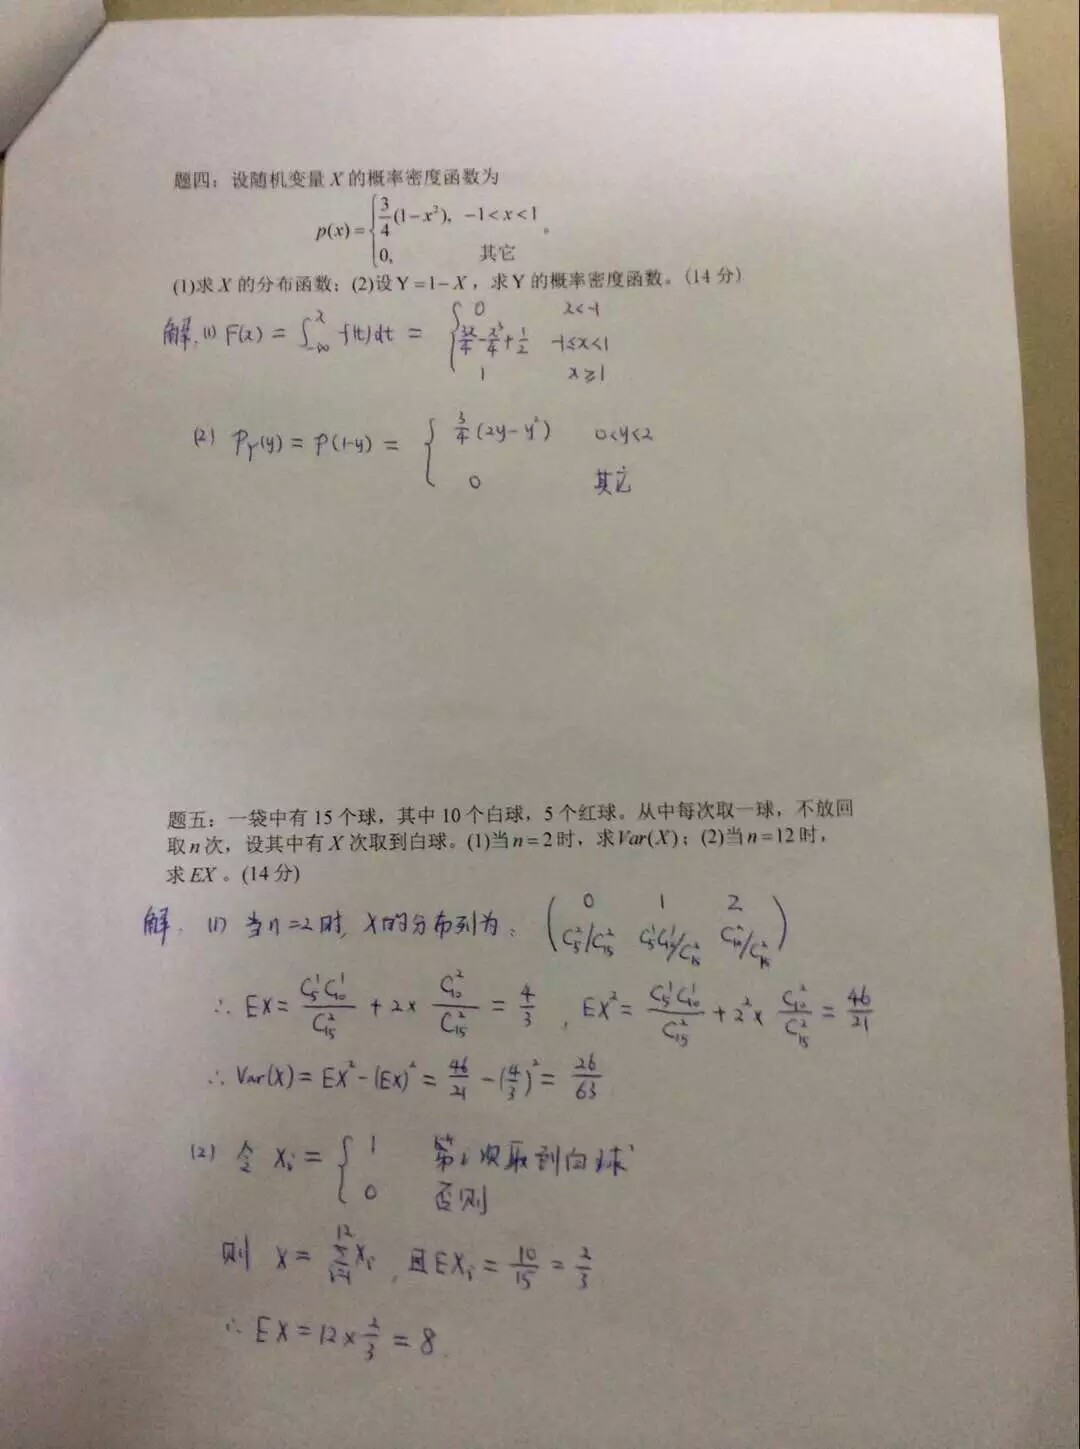 题四：设随机变量 X 的概率密度函数为
p(x)={ 3/4(1-x²), -1<x<1
0, 其它 。
(1)求 X 的分布函数；(2)设 Y=1-X，求 Y 的概率密度函数。(14 分)
解. (1) F(x) = ∫_{-∞}^{x} f(t)dt = { 0 x<-1
3x/4 - x³/4 + 1/2 -1≤x<1
1 x≥1
(2) P_Y(y) = P(1-y) = { 3/4(2y-y²) 0<y<2
0 其它
题五：一袋中有 15 个球，其中 10 个白球，5 个红球。从中每次取一球，不放回
取 n 次，设其中有 X 次取到白球。(1)当 n=2 时，求 Var(X)；(2)当 n=12 时，
求 EX 。(14 分)
解. (1) 当 n=2 时, X 的分布列为: ( 0 1 2
C_5^2/C_15^2 C_5^1C_10^1/C_15^2 C_10^2/C_15^2 )
∴ EX = C_5^1C_10^1/C_15^2 + 2× C_10^2/C_15^2 = 4/3 , EX² = C_5^1C_10^1/C_15^2 + 2²× C_10^2/C_15^2 = 46/21
∴ Var(X) = EX² - (EX)² = 46/21 - (4/3)² = 26/63
(2) 令 X_i = { 1 第i次取到白球
0 否则
则 X = Σ_{i=1}^{12} X_i , 且 EX_i = 10/15 = 2/3
∴ EX = 12× 2/3 = 8.